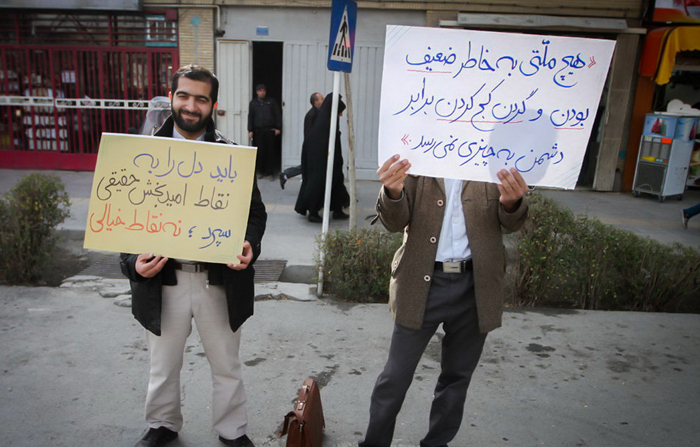 باید دل را به
نقاط امیدبخش حقیقی
سپرد ؛ نه نقاط خیالی
«هیچ ملّتی به خاطر ضعیف
بودن و گردن کج کردن برابر
دشمن به چیزی نمی‌رسد.»